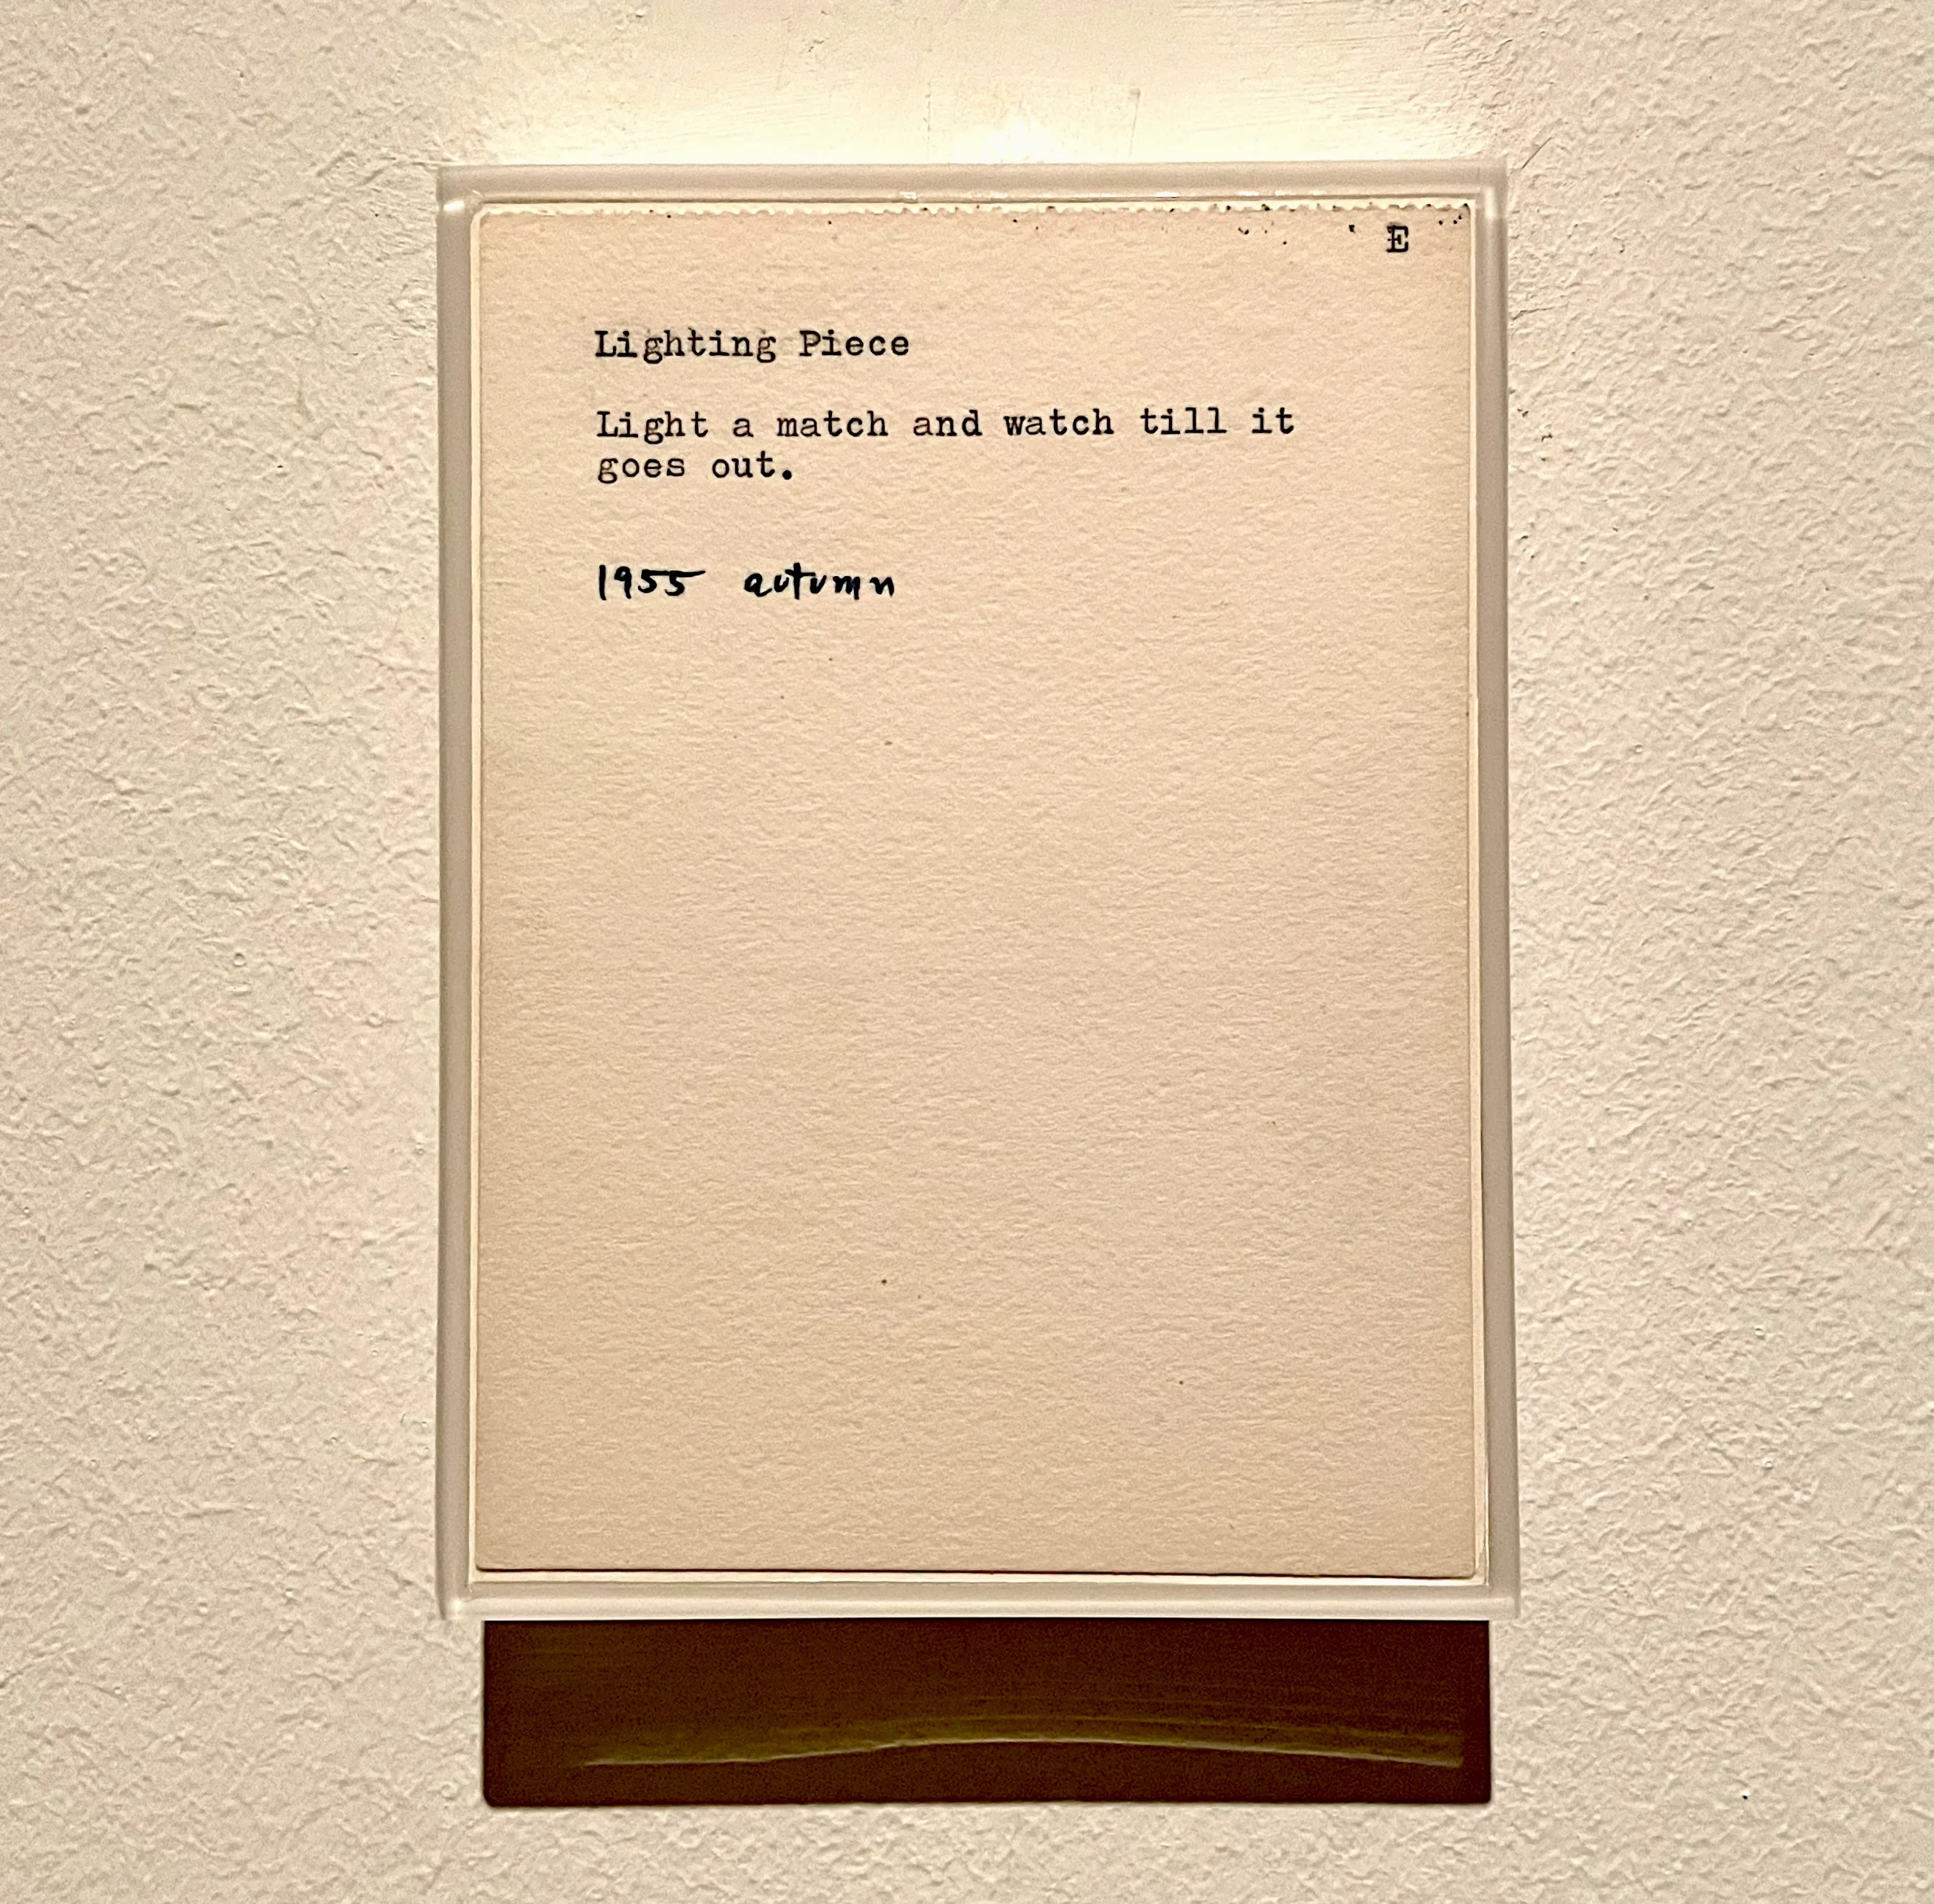 E
Lighting Piece
Light a match and watch till it
goes out.
1955 autumn